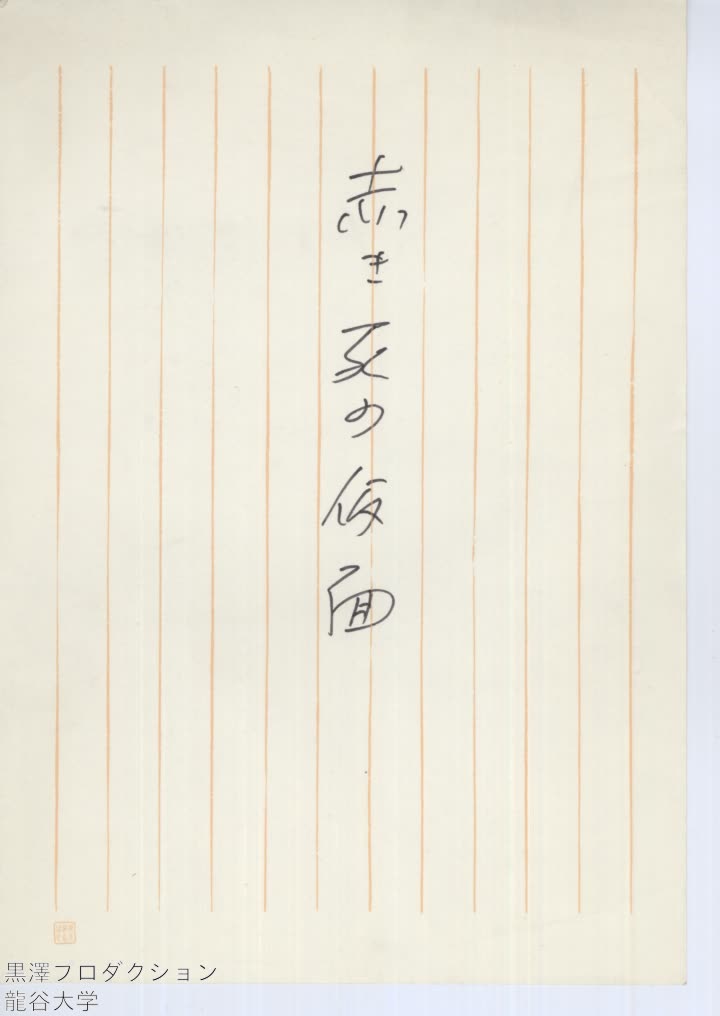 赤き死の仮面
黒澤フロダクション
龍谷大学